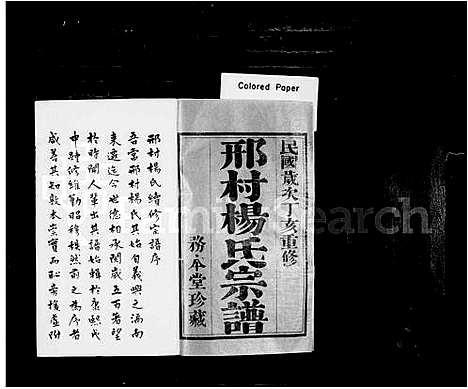 Colored Paper
民國歲次丁亥重修
邢村楊氏宗譜
務本堂珍藏
邢村楊氏續修宗譜序
吾宗邢村楊氏其始自義興之滆南
來遷迄今世德相承閱歲五百者望
於時聞人輩出其譜始輯於康熙戊
申踵修維勤昭穆秩然前之為序者
咸善其知敦本